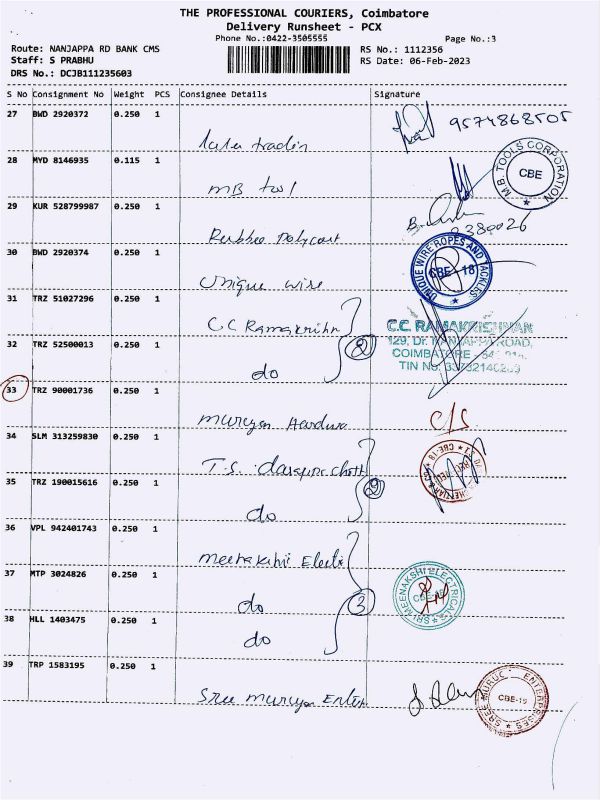 THE PROFESSIONAL COURIERS, Coimbatore
Delivery Runsheet - PCX
Phone No.:0422-3505555
Page No.:3
Route: NANJAPPA RD BANK CMS
RS No.: 1112356
Staff: S PRABHU
RS Date: 06-Feb-2023
DRS No.: DCJB111235603
S No Consignment No Weight PCS Consignee Details Signature
27 BWD 2920372 0.250 1
9574868505
28 MYD 8146935 0.115 1
M.B. TOOLS CORPORATION
CBE
MB tool
29 KUR 528799987 0.250 1
Rubber Polycart
30 BWD 2920374 0.250 1
UNIQUE WIRE ROPES AND TACKLES
CBE - 18
Unique wire
31 TRZ 51027296 0.250 1
C.C Ramakrihn
C.C. RAMAKRISHNAN
129, Dr. NANJAPPA ROAD,
COIMBATORE -
TIN No.
32 TRZ 52500013 0.250 1
do
2
33 TRZ 90001736 0.250 1
C/S
34 SLM 313259830 0.250 1
T.S.
CBE-18
35 TRZ 190015616 0.250 1
do
36 VPL 942401743 0.250 1
Meenakshi Electi
37 MTP 3024826 0.250 1
SRI MEENAKSHI ELECTRICALS
do
3
38 HLL 1403475 0.250 1
do
39 TRP 1583195 0.250 1
Sree Murugan Enter
SREE MURUG ENTERPRISES